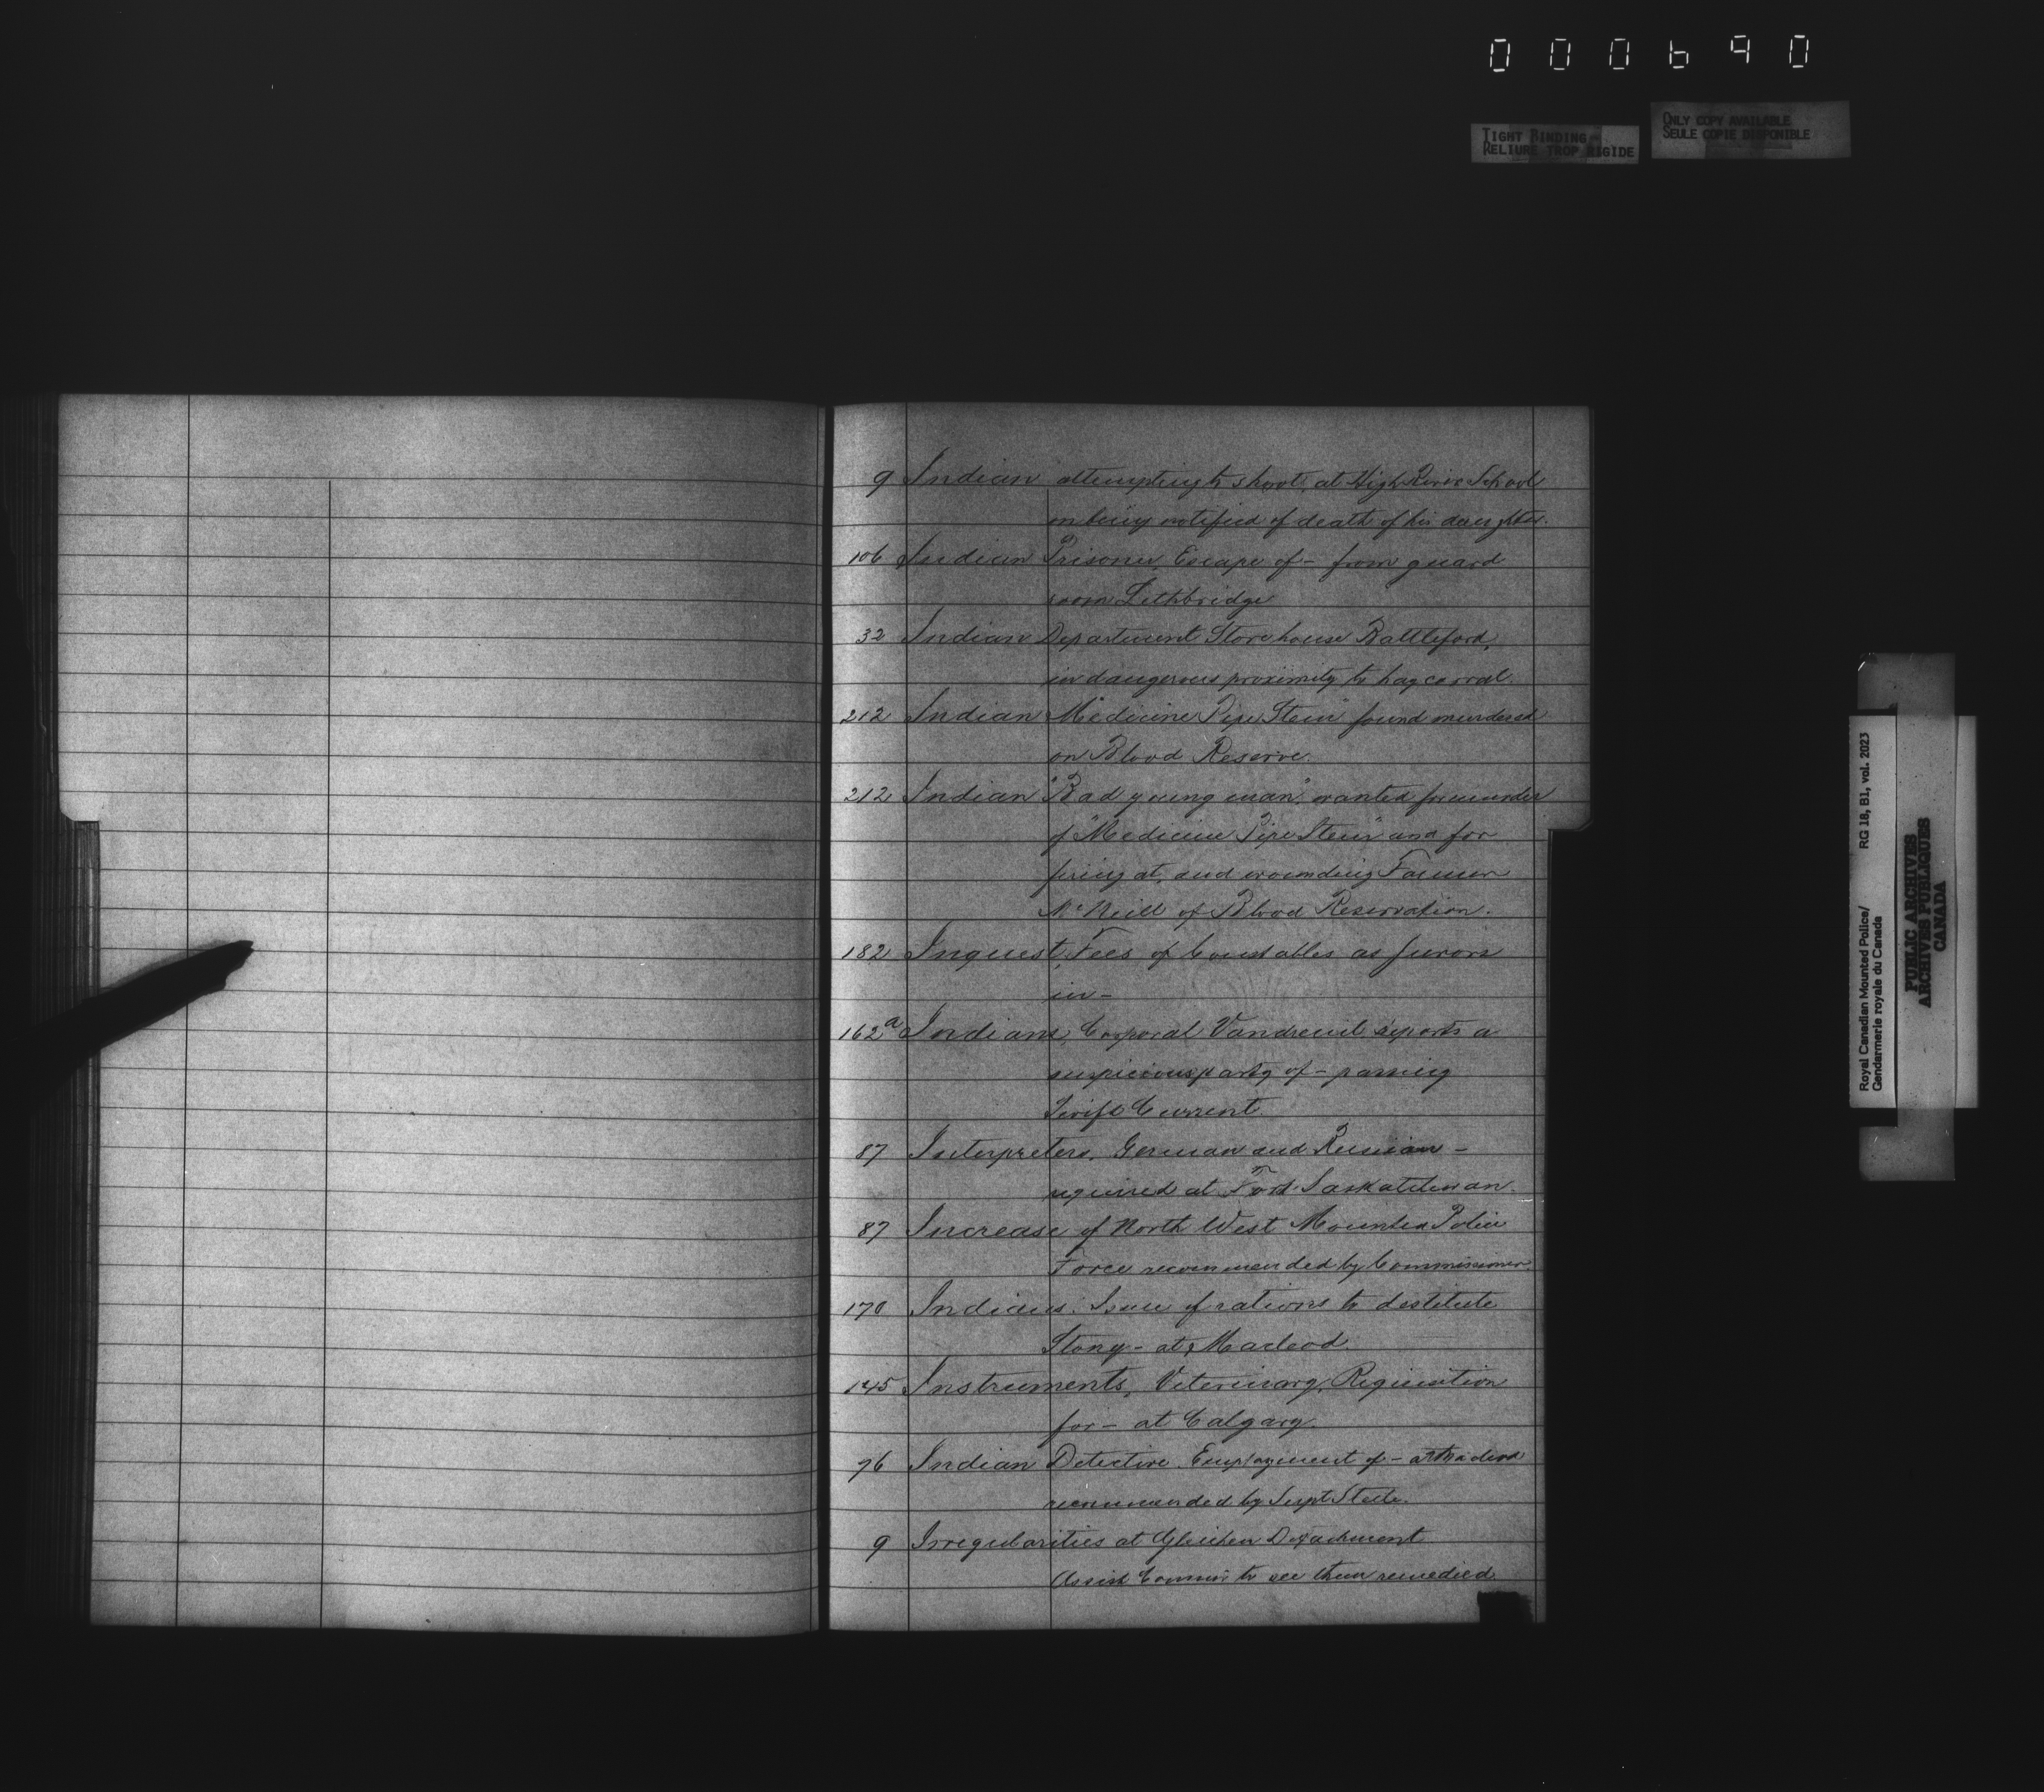 000690
TIGHT BINDING
RELIURE TROP RIGIDE
ONLY COPY AVAILABLE
SEULE COPIE DISPONIBLE
9 Indian attempting to shoot, at High River School
on being notified of death of his daughter.
106 Indian Prisoner, Escape of - from guard
room Lethbridge
32 Indian Department Storehouse Battleford,
in dangerous proximity to hay corral.
212 Indian "Medicine Pipe Stem" found murdered
on Blood Reserve.
212 Indian "Bad young man", wanted for murder
of "Medicine Pipe Stem" and for
firing at, and wounding Farmer
McNeill of Blood Reservation.
182 Inquest, Fees of Constables as Jurors
in -
162a Indians, Corporal Vandreuil reports a
suspicious party of - passing
Swift Current
87 Interpreters, German and Russian -
required at Fort Saskatchewan.
87 Increase of North West Mounted Police
Force recommended by Commissioner.
170 Indians. Issue of rations to destitute
Stony - at Macleod.
145 Instruments, Veterinary, Requisition
for - at Calgary.
76 Indian Detective. Employment of - at Macleod
recommended by Supt Steele.
9 Irregularities at Gleichen Detachment
Assist Commr to see them remedied
Royal Canadian Mounted Police/
Gendarmerie royale du Canada
RG 18, B1, vol. 2023
PUBLIC ARCHIVES
ARCHIVES PUBLIQUES
CANADA